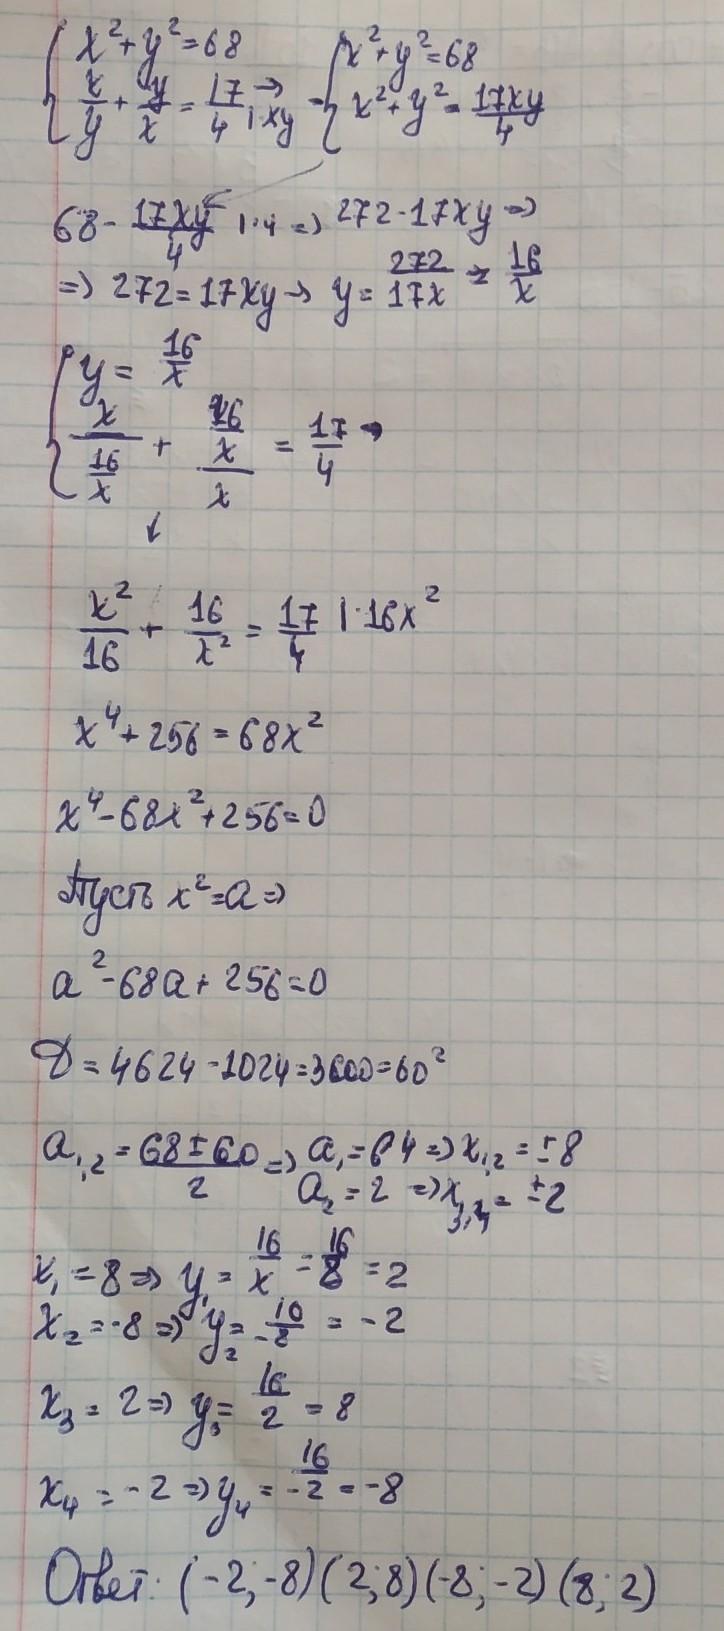 { x²+y²=68 { x²+y²=68
x/y + y/x = 17/4 → |·xy = x²+y² = 17xy/4
68 - 17xy/4 |·4 => 272-17xy =>
=> 272=17xy → y = 272/17x = 16/x
{ y = 16/x
x/(16/x) + (16/x)/x = 17/4 →
↓
x²/16 + 16/x² = 17/4 |·16x²
x⁴+256=68x²
x⁴-68x²+256=0
Пусть x²=a =>
a²-68a+256=0
D=4624-1024=3600=60²
a₁,₂ = (68±60)/2 => a₁=64 => x₁,₂ = ±8
a₂=2 => x₃,₄ = ±2
x₁=8 => y₁ = 16/x = 16/8 = 2
x₂=-8 => y₂ = 16/-8 = -2
x₃=2 => y₃ = 16/2 = 8
x₄=-2 => y₄ = 16/-2 = -8
Ответ: (-2;-8)(2;8)(-8;-2)(8;2)